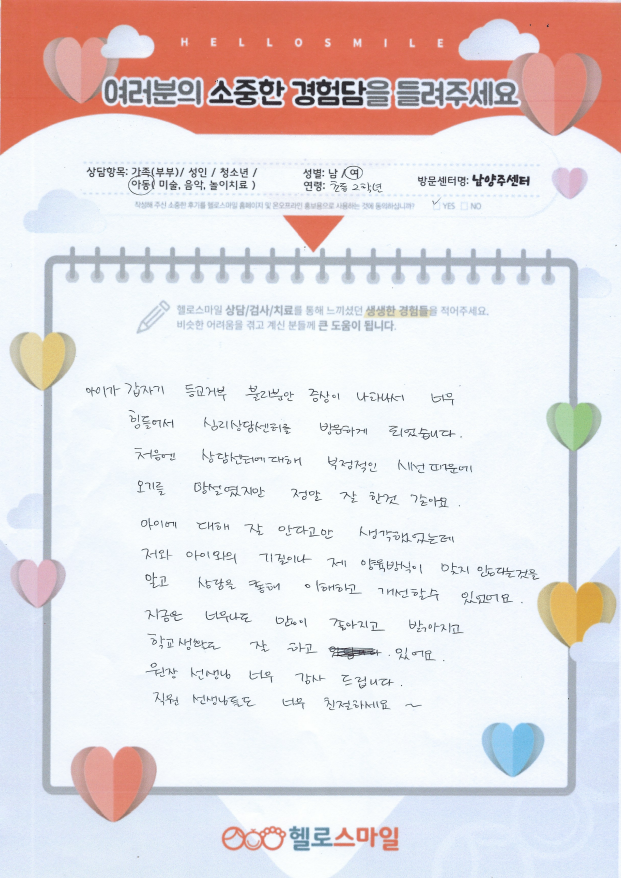 HELLOSMILE
여러분의 소중한 경험담을 들려주세요
상담항목: 가족(부부)/ 성인 / 청소년 /
아동( 미술, 음악, 놀이치료 )
성별: 남 / 여
연령: 초등 2학년
방문센터명: 남양주센터
작성해 주신 소중한 후기를 헬로스마일 홈페이지 및 온오프라인 홍보용으로 사용하는 것에 동의하십니까? ✓ YES NO
헬로스마일 상담/검사/치료를 통해 느끼셨던 생생한 경험들을 적어주세요.
비슷한 어려움을 겪고 계신 분들께 큰 도움이 됩니다.
아이가 갑자기 등교거부 분리불안 증상이 나타나서 너무
힘들어서 심리상담센터를 방문하게 되었습니다.
처음엔 상담센터에대해 부정적인 시선때문에
오기를 망설였지만 정말 잘 한것 같아요.
아이에 대해 잘 안다고만 생각하고있었는데
저와 아이와의 기질이나 제 양육방식이 맞지 않는다는것을
알고 상담을 통해 이해하고 개선할수 있었어요.
지금은 너무나도 많이 좋아지고 밝아지고
학교생활도 잘 하고 있어요.
원장 선생님 너무 감사 드립니다.
직원 선생님들도 너무 친절하세요 ~
헬로스마일